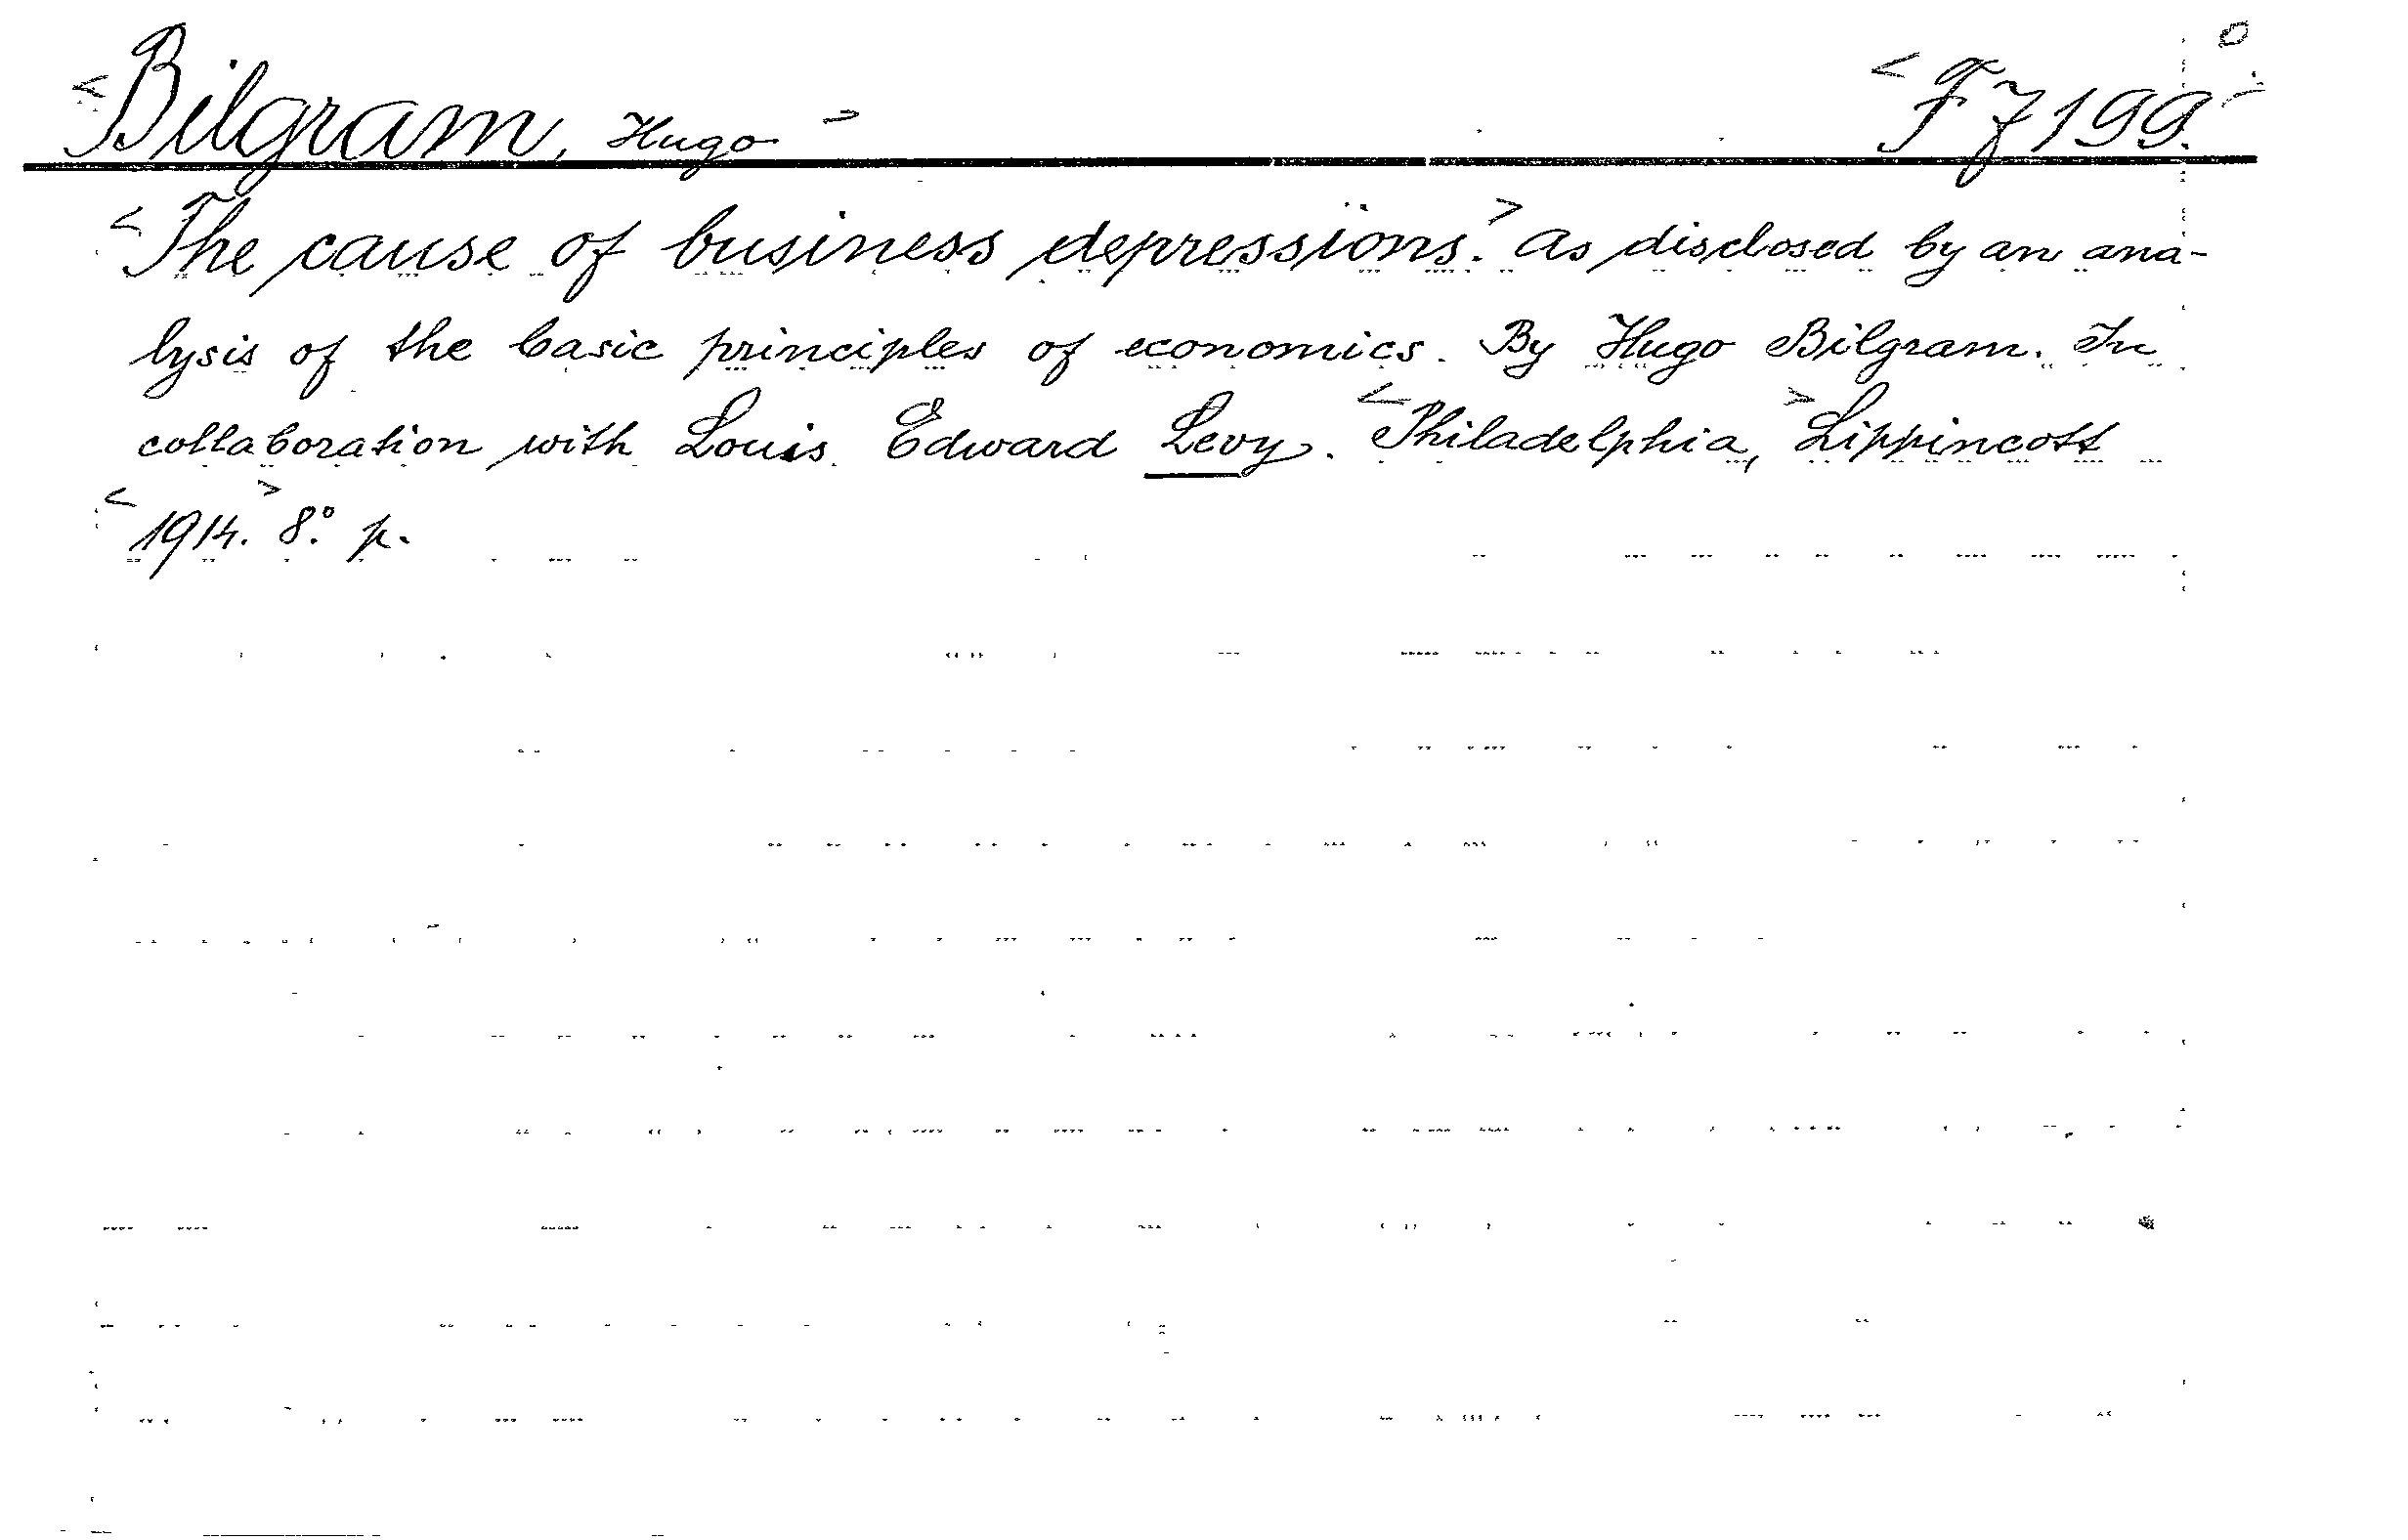 <Bilgram, Hugo> <F 7199.>
<The cause of business depressions.> As disclosed by an ana-
lysis of the basic principles of economics. By Hugo Bilgram. In
collaboration with Louis Edward Levy. <Philadelphia,> Lippincott
<1914.> 8.° p.